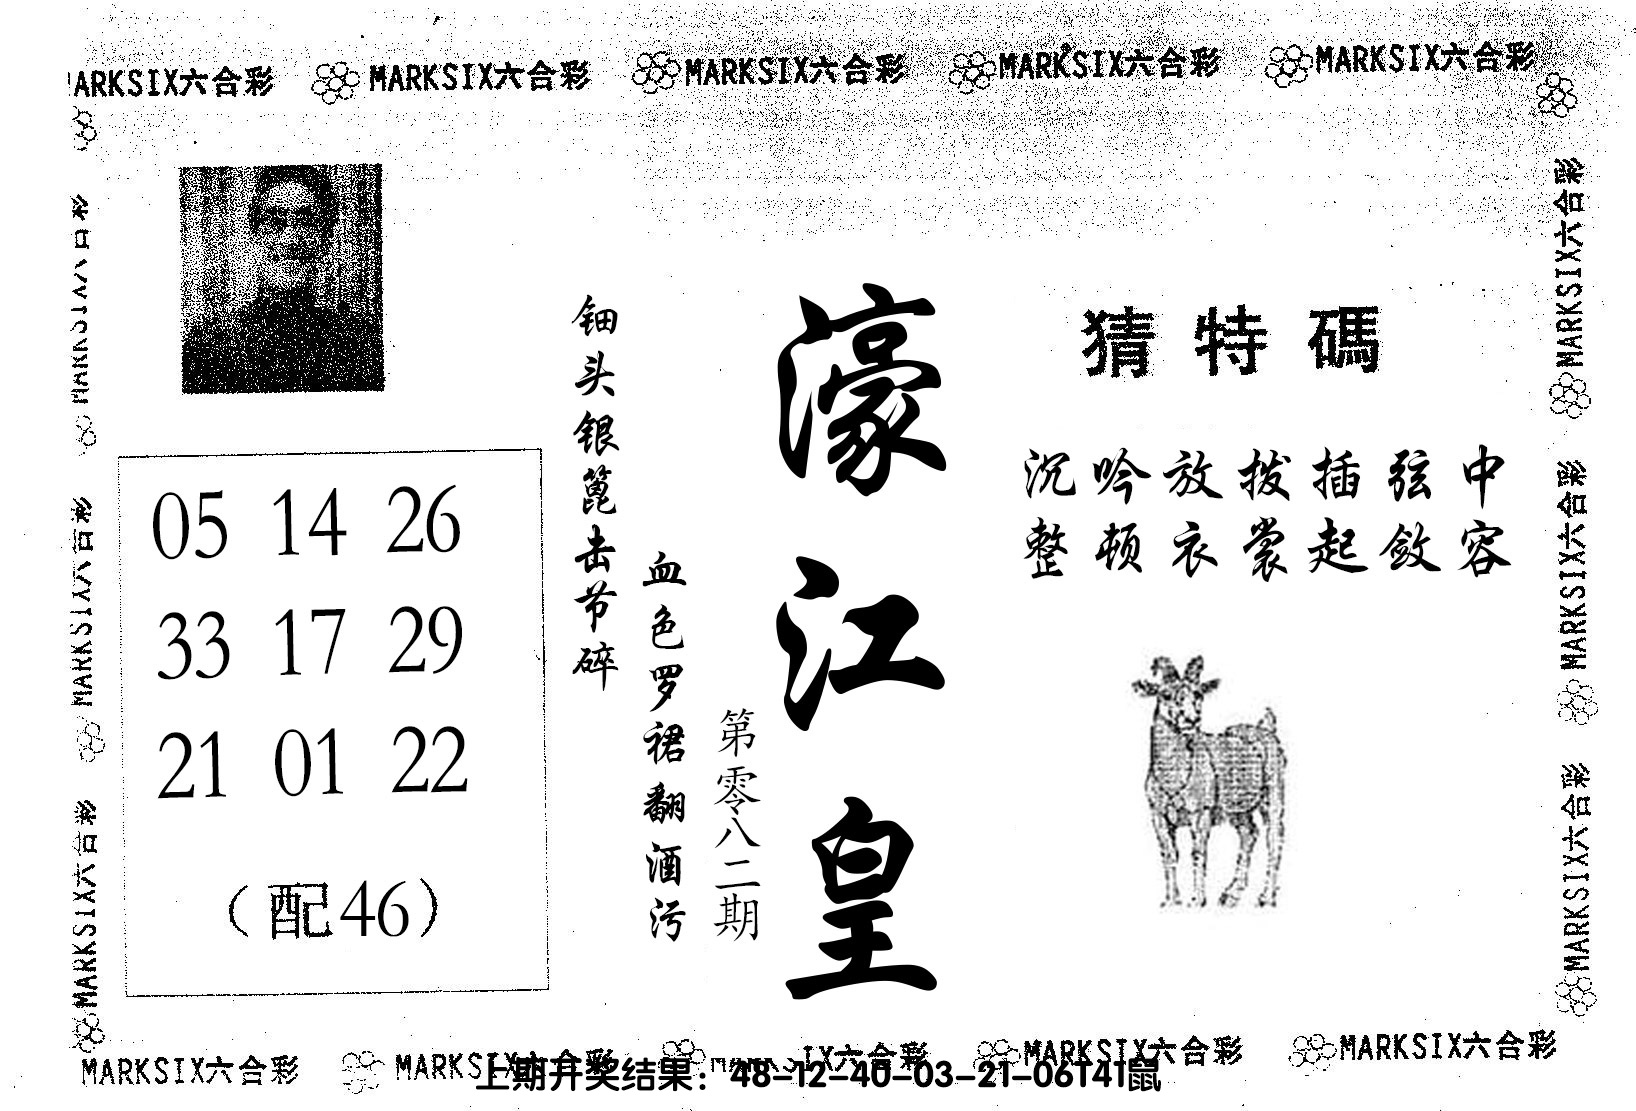 ARKSIX六合彩 MARKSIX六合彩 MARKSIX六合彩 MARKSIX六合彩 MARKSIX六合彩
MARKSIX六合彩
MARKSIX六合彩
MARKSIX六合彩
MARKSIX六合彩
MARKSIX六合彩
05 14 26
33 17 29
21 01 22
（配46）
钿头银篦击节碎
血色罗裙翻酒污
第零八二期
濠江皇
猜特碼
沉吟放拨插弦中
整顿衣裳起敛容
MARKSIX六合彩 MARKSIX六合彩 IX六合彩 MARKSIX六合彩 MARKSIX六合彩
上期开奖结果：48-12-40-03-21-06T41鼠